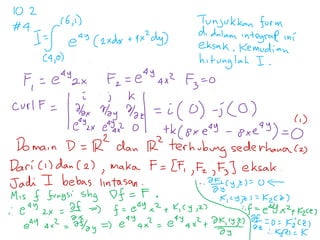 10.2
#4
I = ∫_(4,0)^(6,1) e^4y (2xdx + 4x²dy)
Tunjukkan form
di dalam integral ini
eksak. Kemudian
hitunglah I.
F₁ = e^4y 2x F₂ = e^4y 4x² F₃ = 0
curl F = | i j k |
| ∂/∂x ∂/∂y ∂/∂z | = i(0) - j(0)
| e^4y 2x e^4y 4x² 0 | + k(8xe^4y - 8xe^4y) = 0 (1)
Domain D = R² dan R² terhubung sederhana (2)
Dari (1) dan (2), maka F = [F₁, F₂, F₃] eksak
Jadi I bebas lintasan.
Mis f fungsi shg ∇f = F.
∴ e^4y 2x = ∂f/∂x ⇒ f = e^4y x² + K₁(y,z)
e^4y 4x² = ∂f/∂y ⇒ e^4y 4x² = e^4y 4x² + ∂K₁(y,z)/∂y
∴ ∂K₁(y,z)/∂y = 0 ←
K₁(y,z) = K₂(z)
∴ f = e^4y x² + K₂(z)
∂f/∂z = 0 = K₂'(z)
∴ K₂(z) = K